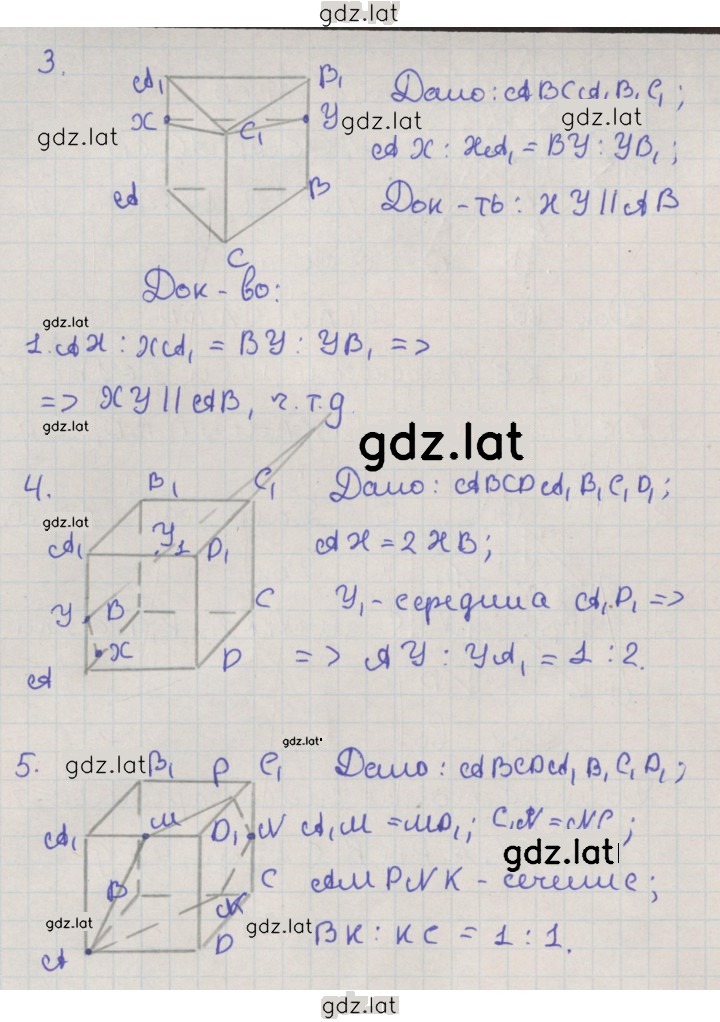 gdz.lat
3.
A₁ B₁
X Y
C₁
A B
C
Дано: ABCA₁B₁C₁;
AX : XA₁ = BY : YB₁;
Док-ть: XY || AB
gdz.lat
gdz.lat
gdz.lat
Док-во:
gdz.lat
1. AX : XA₁ = BY : YB₁ =>
=> XY || AB, ч.т.д.
gdz.lat
gdz.lat
4.
B₁ C₁
A₁ Y₁ D₁
Y B C
X
A D
Дано: ABCDA₁B₁C₁D₁;
gdz.lat
AX = 2XB;
Y₁ - середина A₁D₁ =>
=> AY : YA₁ = 1 : 2.
gdz.lat
5.
gdz.lat
B₁ P C₁
A₁ M D₁ N
B C
K
A D
Дано: ABCDA₁B₁C₁D₁;
A₁M = MD₁; C₁N = NC;
gdz.lat
AMPNK - сечение;
gdz.lat
gdz.lat
BK : KC = 1 : 1.
gdz.lat